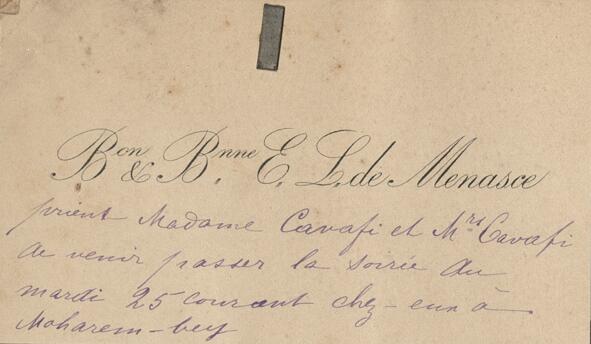 Bon & Bnne E. L. de Menasce
prient Madame Cavafi et Mrs Cavafi
de venir passer la soirée du
mardi 25 courant chez-eux à
Moharem-bey